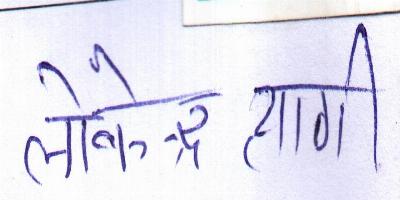 लोकेन्द्र त्यागी